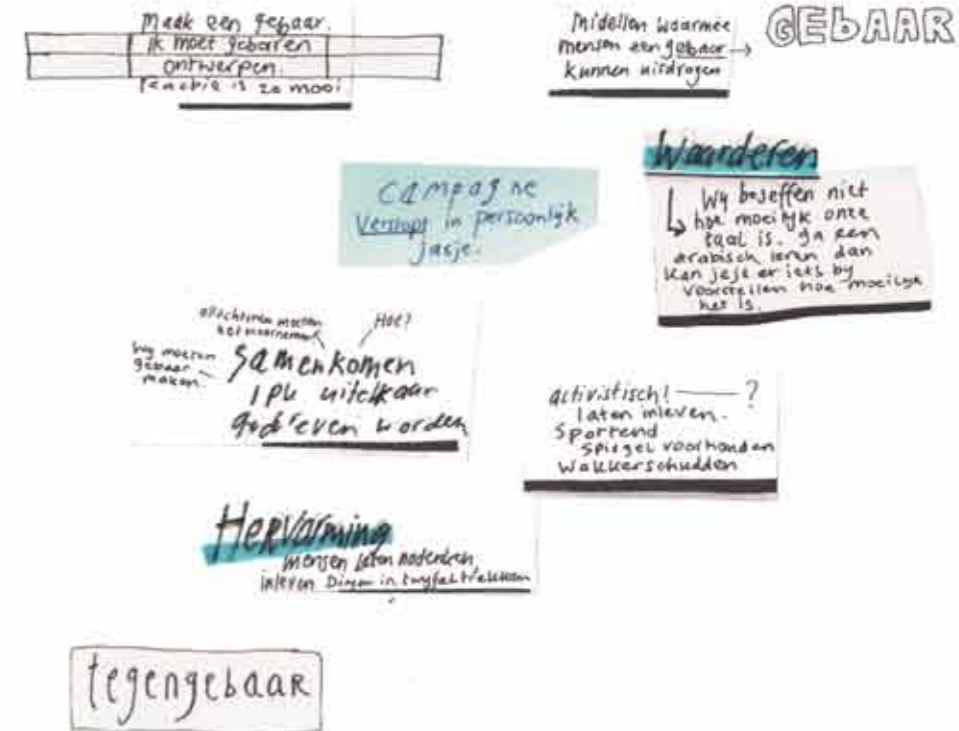 Maak een gebaar.
ik moet gebaren
ontwerpen.
reactie is zo mooi
Midellen waarmee
mensen een gebaar →
kunnen uitdragen
GEBAAR
Waarderen
Wy beseffen niet
hoe moeilyk onze
taal is. ga een
arabisch leren dan
kan je je er iets by
voorstellen hoe moeilyk
het is.
Campagne
Verstopt in persoonlyk
jasje.
allochtonen moeten
het
Hoe?
Wy moeten
gebaar
maken
Samenkomen
ipv uitelkaar
gedreven worden
activistisch! ?
laten inleven.
Sporrend
Spiegel voorhouden
Wakkerschudden
Hervorming
mensen laten nadenken,
inleven Dingen in twyfel trekken
tegengebaar